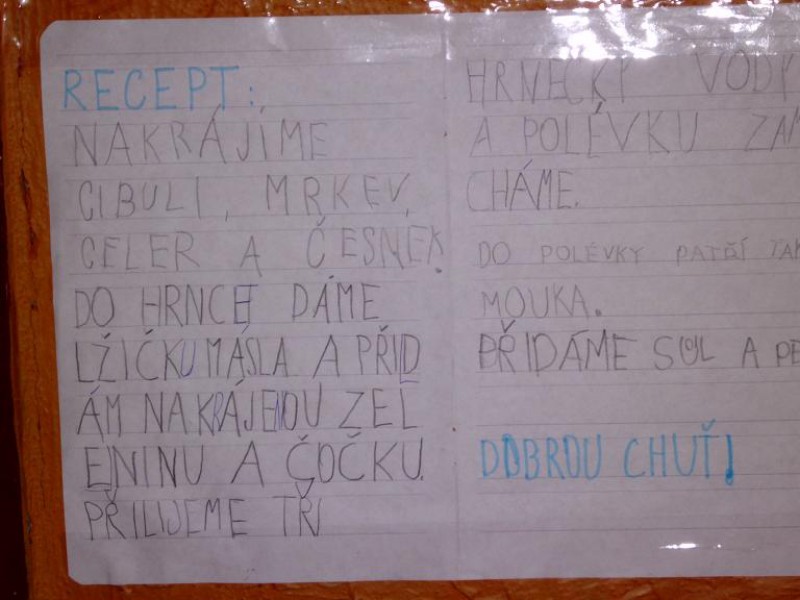 RECEPT:
NAKRÁJÍME
CIBULI, MRKEV,
CELER A ČESNEK.
DO HRNCE DÁME
LŽIČKU MÁSLA A PŘID
ÁM NAKRÁJENOU ZEL
ENINU A ČOČKU.
PŘILIJEME TŘI
HRNEČKY VODY
A POLÉVKU ZAM
CHÁME.
DO POLÉVKY PATŘÍ TAK
MOUKA.
PŘIDÁME SŮL A PE
DOBROU CHUŤ!